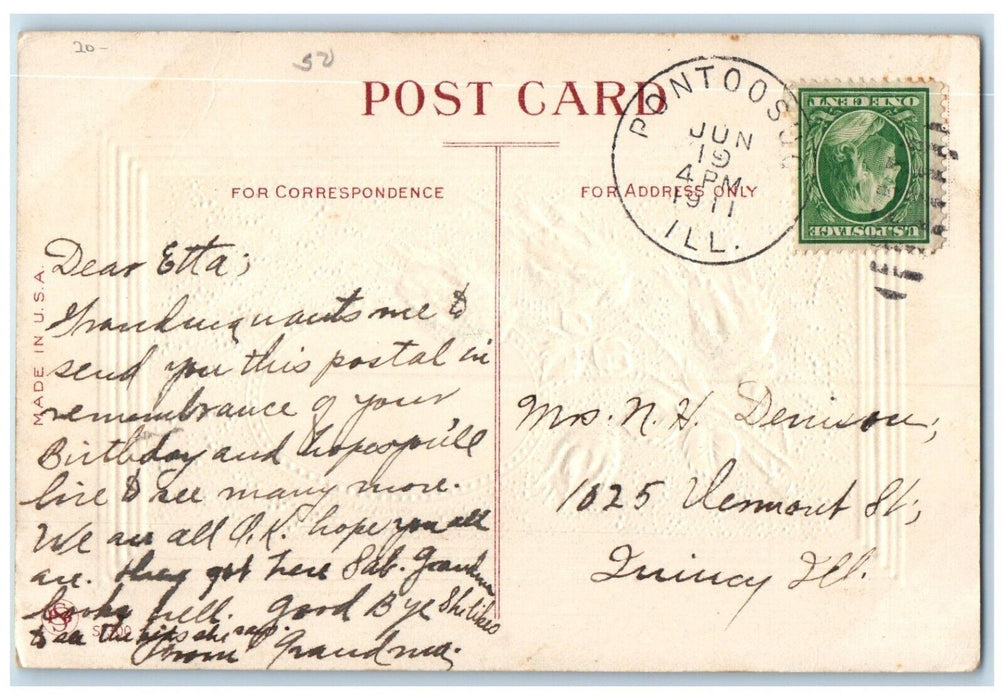 20-
50
POST CARD
FOR CORRESPONDENCE
FOR ADDRESS ONLY
PONTOOSUC
JUN
19
4 PM
1911
ILL.
ONE CENT
U.S. POSTAGE
MADE IN U.S.A.
Dear Etta;
wants me to
send you this postal in
remembrance of your
Birthday and hopes you'll
live to see many more.
We are all O.K. hope you all
are. they got here Sat. Grandma
looks well. Good Bye She likes
to see the she says.
From Grandma.
Mrs. N. H. Denison,
1025 Vermont St,
Quincy Ill.